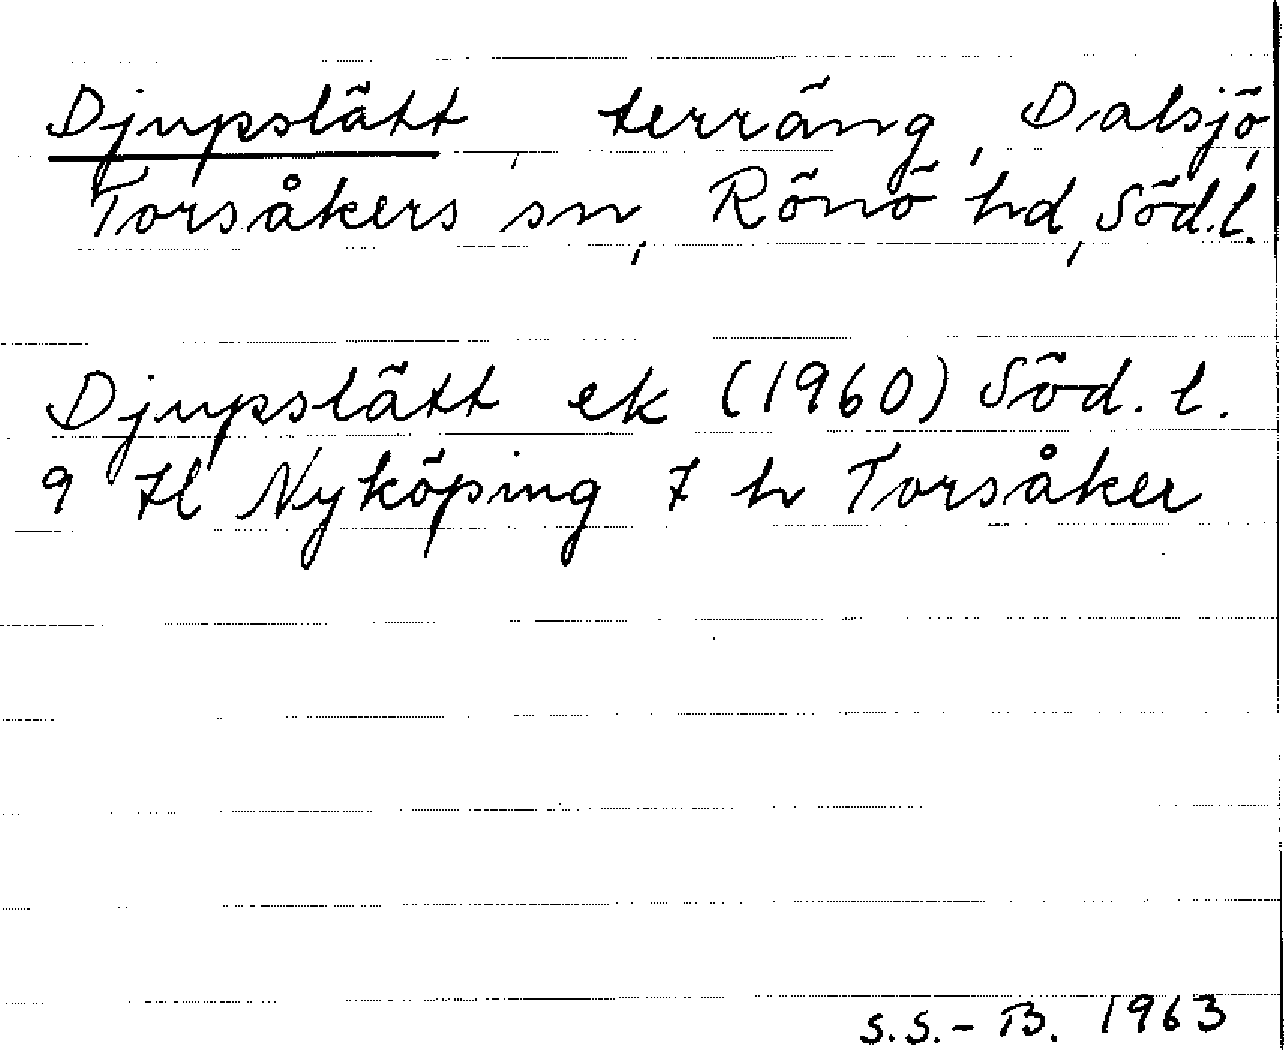 Djupslätt, terräng, Dalsjö,
Torsåkers sn, Rönö hd, Söd.l.
Djupslätt ek (1960) Söd. l.
9 H Nyköping 7 h Torsåker
S.S.-B. 1963